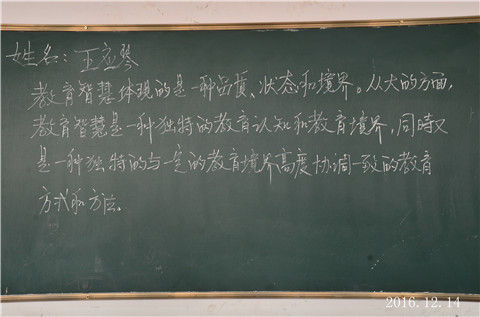 姓名：王应琴
教育智慧体现的是一种品质、状态和境界。从大的方面，
教育智慧是一种独特的教育认知和教育境界，同时又
是一种独特的与一定的教育境界高度协调一致的教育
方式和方法。
2016.12.14